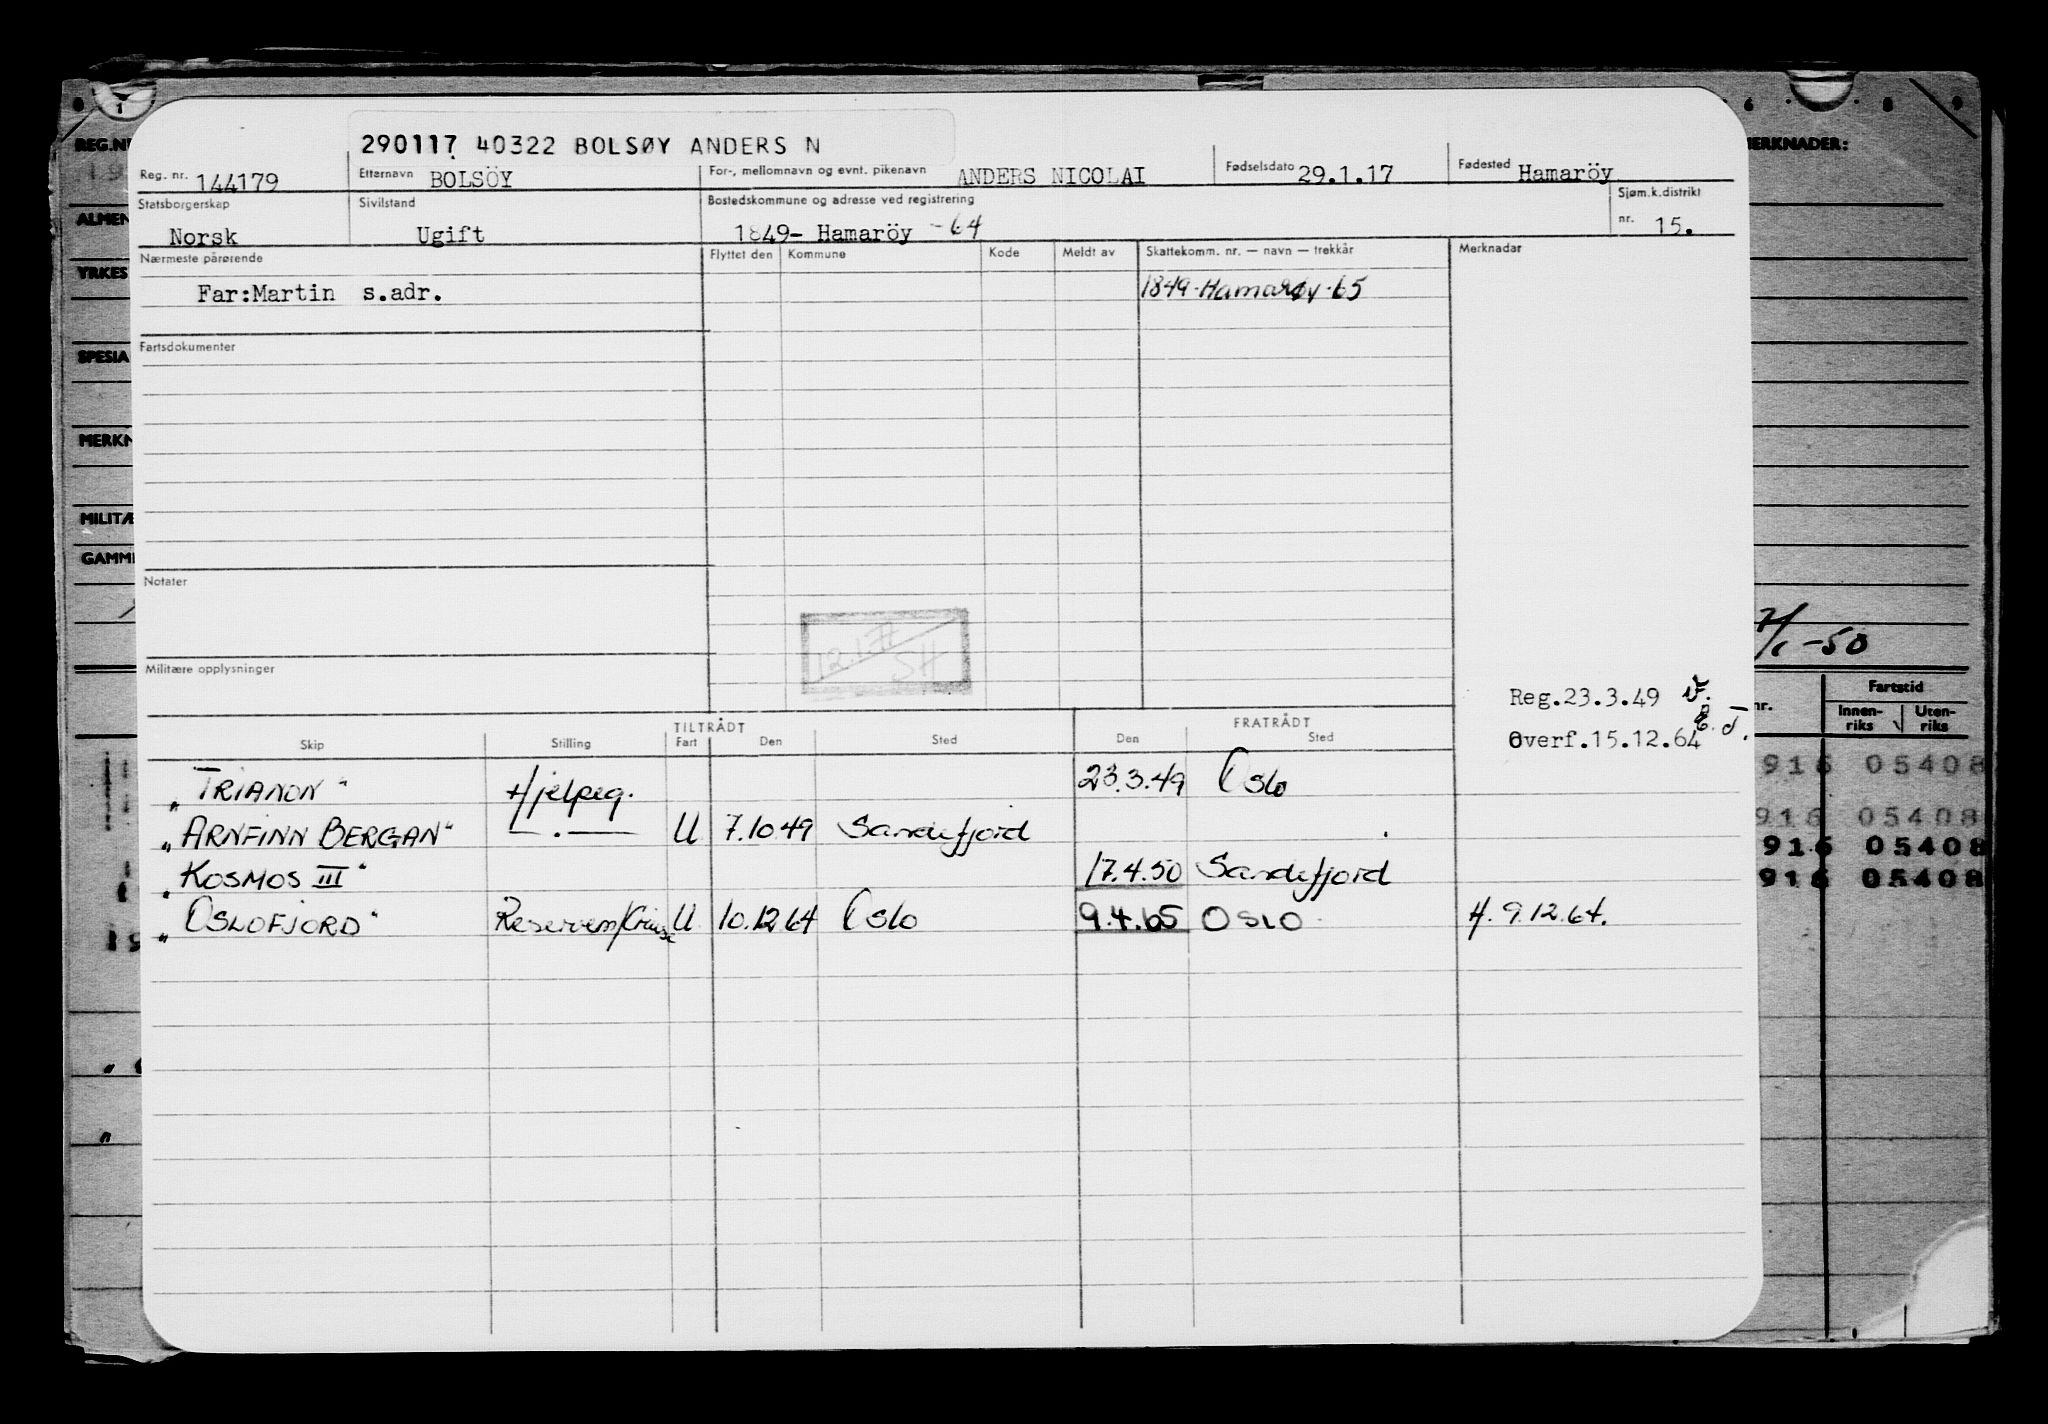 290117 40322 BOLSØY ANDERS N
Reg. nr. 144179 Etternavn BOLSÖY For-, mellomnavn og evnt. pikenavn ANDERS NICOLAI Fødselsdato 29.1.17 Fødested Hamaröy
Statsborgerskap Norsk Sivilstand Ugift Bostedskommune og adresse ved registrering 1849- Hamaröy -64 Sjøm.k.distrikt nr. 15.
Nærmeste pårørende Flyttet den Kommune Kode Meldt av Skattekomm. nr. — navn — trekkår Merknader
Far:Martin s.adr. 1849-Hamarøy-65
Fartsdokumenter
Notater
12.1.77 SH
Militære opplysninger
Reg.23.3.49
Overf.15.12.64
TILTRÅDT FRATRÅDT
Skip Stilling Fart Den Sted Den Sted
"TRIANON" Hjelpeg. 23.3.49 Oslo
"ARNFINN BERGAN" — . — U 7.10.49 Sandefjord
"KOSMOS III" 17.4.50 Sandefjord
"OSLOFJORD" U 10.12.64 Oslo 9.4.65 OSLO H. 9.12.64.
1
REG.N
ALMEN
YRKES
SPESIA
MERKN
MILITÆ
GAMME
6 8 9
MERKNADER:
-50
nr. Fartstid
Innen-riks Uten-riks
916 05408
916 05408
916 05408
916 05408